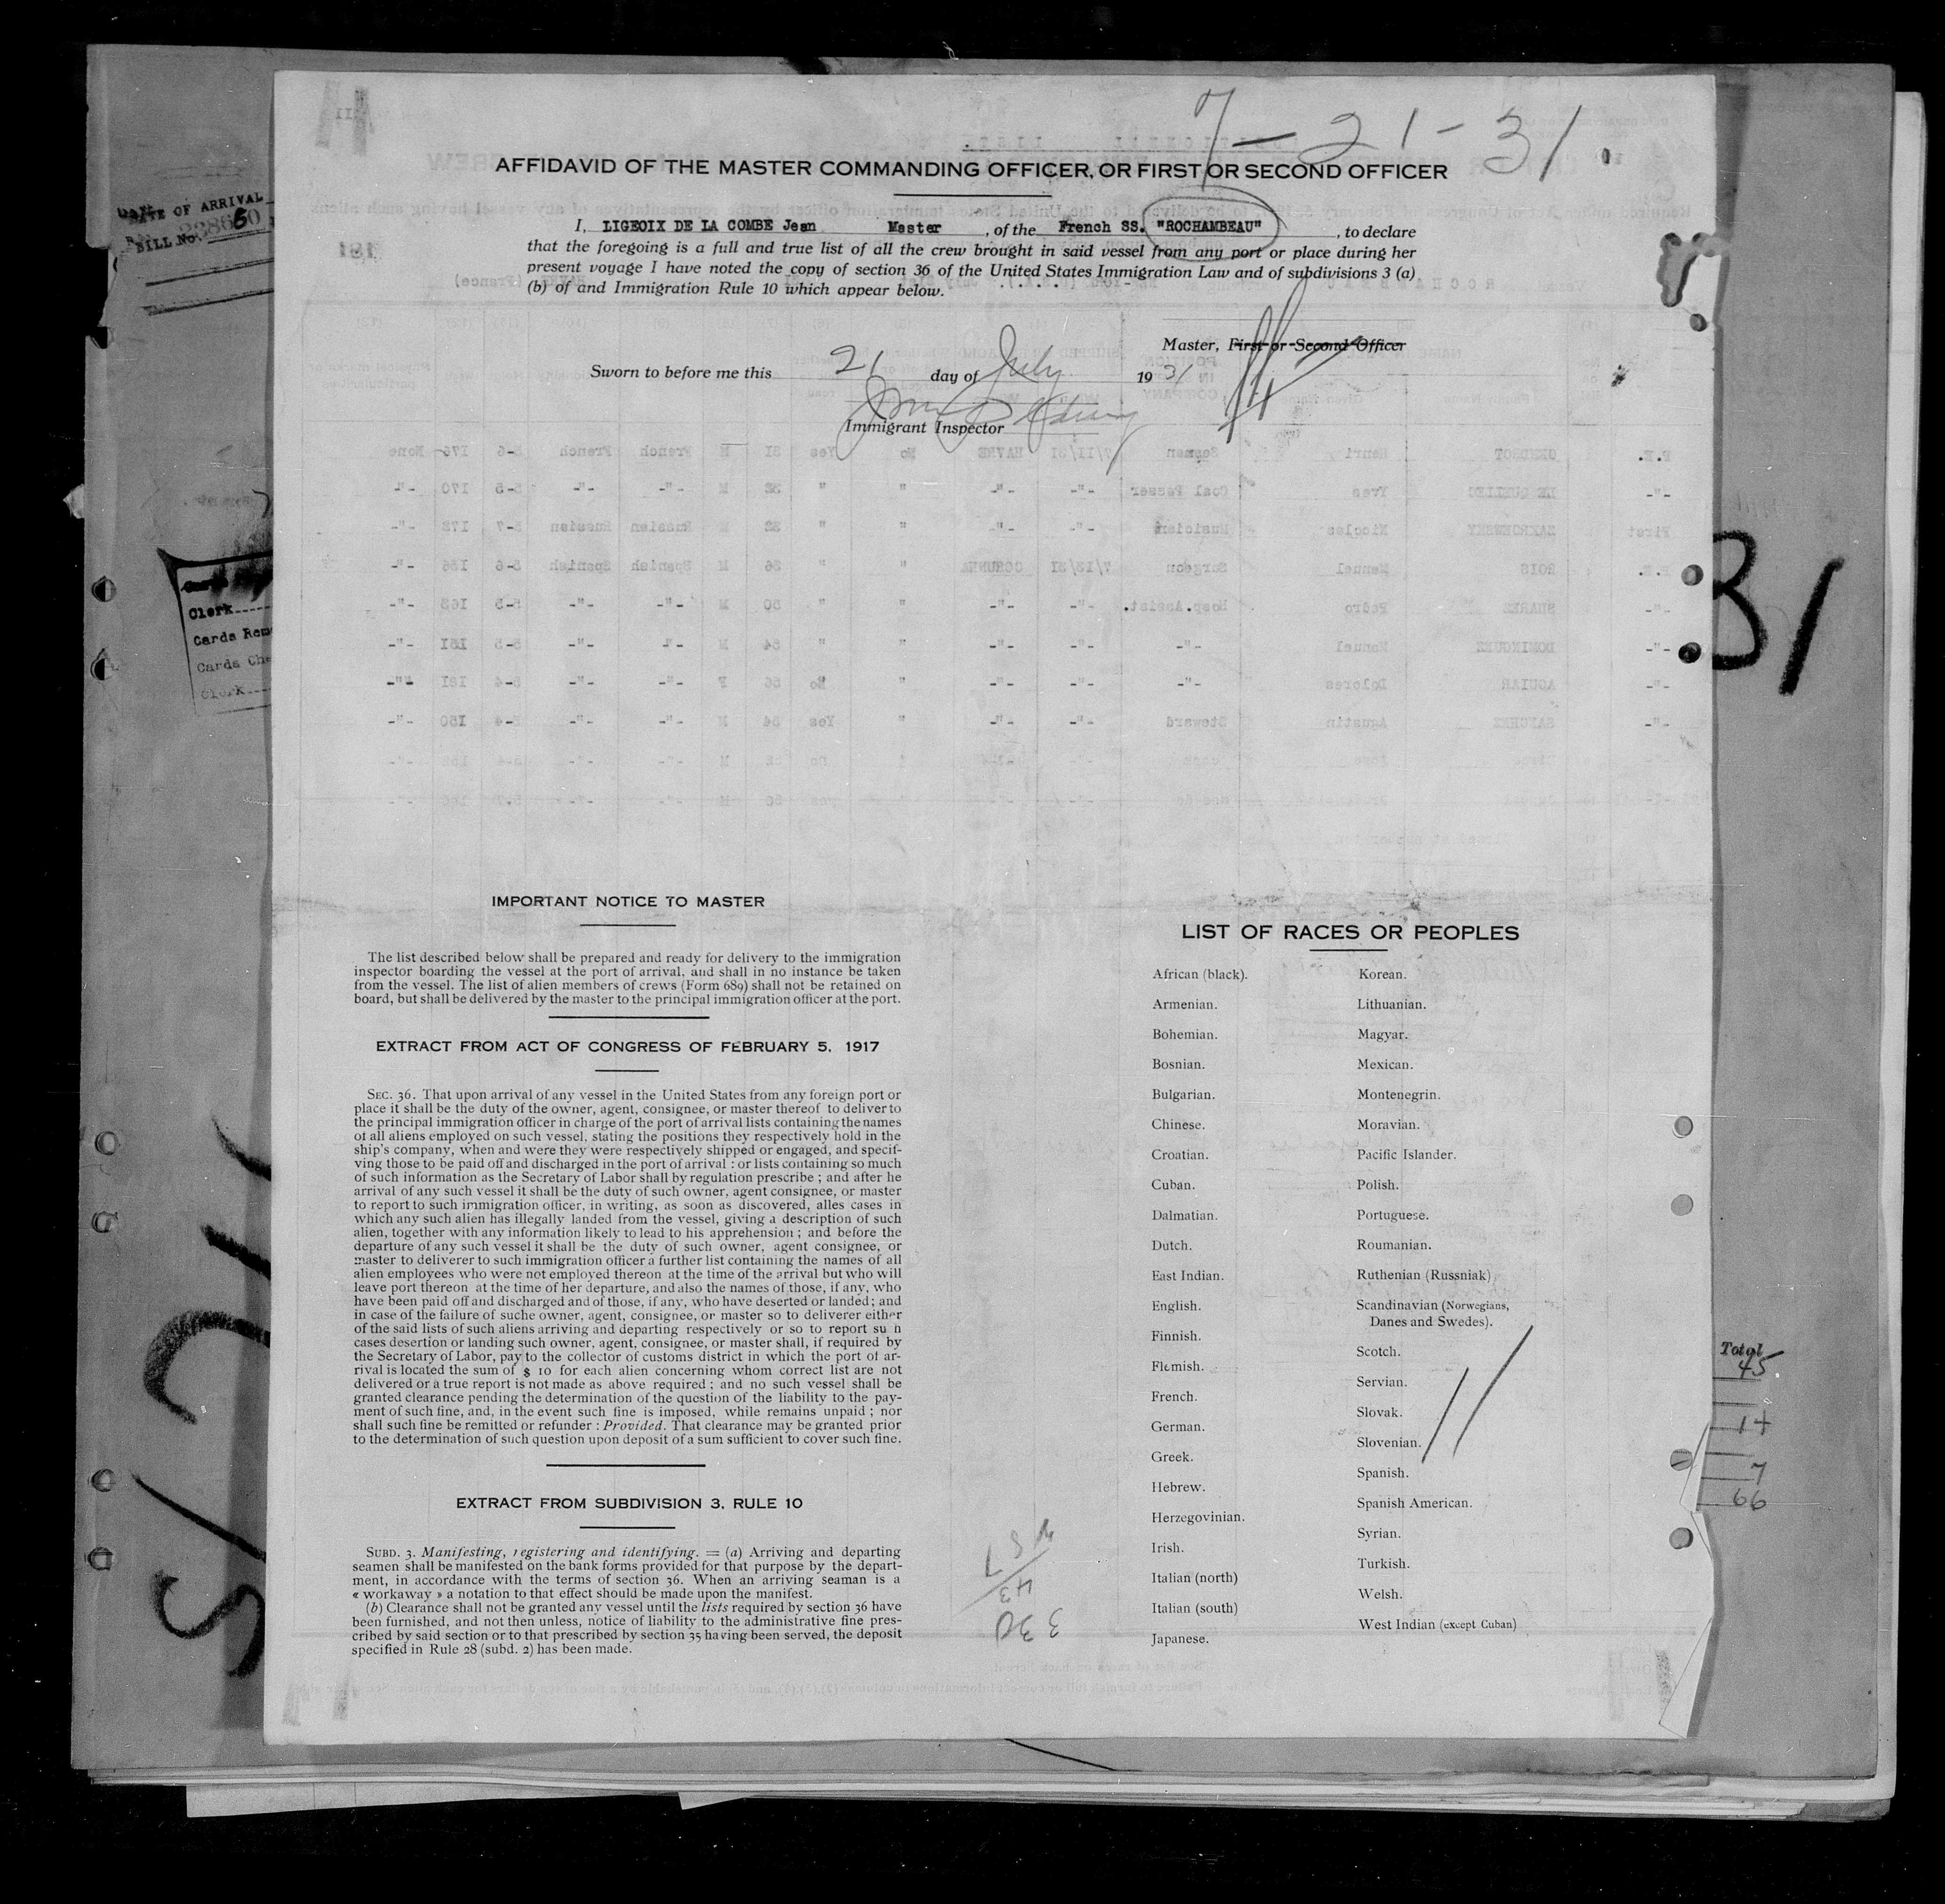 7-21-31
AFFIDAVID OF THE MASTER COMMANDING OFFICER, OR FIRST OR SECOND OFFICER
I, LIGEOIX DE LA COMBE Jean Master, of the French SS. "ROCHAMBEAU", to declare
that the foregoing is a full and true list of all the crew brought in said vessel from any port or place during her
present voyage I have noted the copy of section 36 of the United States Immigration Law and of subdivisions 3 (a)
(b) of and Immigration Rule 10 which appear below.
Master, First or Second Officer
Sworn to before me this 21 day of July 1931
Immigrant Inspector
DATE OF ARRIVAL
BILL No.
Clerk
Cards Rem
Cards Che
Clerk
31
IMPORTANT NOTICE TO MASTER
The list described below shall be prepared and ready for delivery to the immigration
inspector boarding the vessel at the port of arrival, and shall in no instance be taken
from the vessel. The list of alien members of crews (Form 689) shall not be retained on
board, but shall be delivered by the master to the principal immigration officer at the port.
EXTRACT FROM ACT OF CONGRESS OF FEBRUARY 5, 1917
SEC. 36. That upon arrival of any vessel in the United States from any foreign port or
place it shall be the duty of the owner, agent, consignee, or master thereof to deliver to
the principal immigration officer in charge of the port of arrival lists containing the names
of all aliens employed on such vessel, stating the positions they respectively hold in the
ship's company, when and were they were respectively shipped or engaged, and specif-
ving those to be paid off and discharged in the port of arrival : or lists containing so much
of such information as the Secretary of Labor shall by regulation prescribe ; and after he
arrival of any such vessel it shall be the duty of such owner, agent consignee, or master
to report to such immigration officer, in writing, as soon as discovered, alles cases in
which any such alien has illegally landed from the vessel, giving a description of such
alien, together with any information likely to lead to his apprehension ; and before the
departure of any such vessel it shall be the duty of such owner, agent consignee, or
master to deliverer to such immigration officer a further list containing the names of all
alien employees who were not employed thereon at the time of the arrival but who will
leave port thereon at the time of her departure, and also the names of those, if any, who
have been paid off and discharged and of those, if any, who have deserted or landed; and
in case of the failure of suche owner, agent, consignee, or master so to deliverer either
of the said lists of such aliens arriving and departing respectively or so to report su h
cases desertion or landing such owner, agent, consignee, or master shall, if required by
the Secretary of Labor, pay to the collector of customs district in which the port of ar-
rival is located the sum of $ 10 for each alien concerning whom correct list are not
delivered or a true report is not made as above required ; and no such vessel shall be
granted clearance pending the determination of the question of the liability to the pay-
ment of such fine, and, in the event such fine is imposed, while remains unpaid ; nor
shall such fine be remitted or refunder : Provided. That clearance may be granted prior
to the determination of such question upon deposit of a sum sufficient to cover such fine.
EXTRACT FROM SUBDIVISION 3, RULE 10
SUBD. 3. Manifesting, registering and identifying. = (a) Arriving and departing
seamen shall be manifested on the bank forms provided for that purpose by the depart-
ment, in accordance with the terms of section 36. When an arriving seaman is a
« workaway » a notation to that effect should be made upon the manifest.
(b) Clearance shall not be granted any vessel until the lists required by section 36 have
been furnished, and not then unless, notice of liability to the administrative fine pres-
cribed by said section or to that prescribed by section 35 having been served, the deposit
specified in Rule 28 (subd. 2) has been made.
LIST OF RACES OR PEOPLES
African (black).
Armenian.
Bohemian.
Bosnian.
Bulgarian.
Chinese.
Croatian.
Cuban.
Dalmatian.
Dutch.
East Indian.
English.
Finnish.
Flemish.
French.
German.
Greek.
Hebrew.
Herzegovinian.
Irish.
Italian (north)
Italian (south)
Japanese.
Korean.
Lithuanian.
Magyar.
Mexican.
Montenegrin.
Moravian.
Pacific Islander.
Polish.
Portuguese.
Roumanian.
Ruthenian (Russniak)
Scandinavian (Norwegians,
Danes and Swedes).
Scotch.
Servian.
Slovak.
Slovenian.
Spanish.
Spanish American.
Syrian.
Turkish.
Welsh.
West Indian (except Cuban)
Total
45
14
7
66